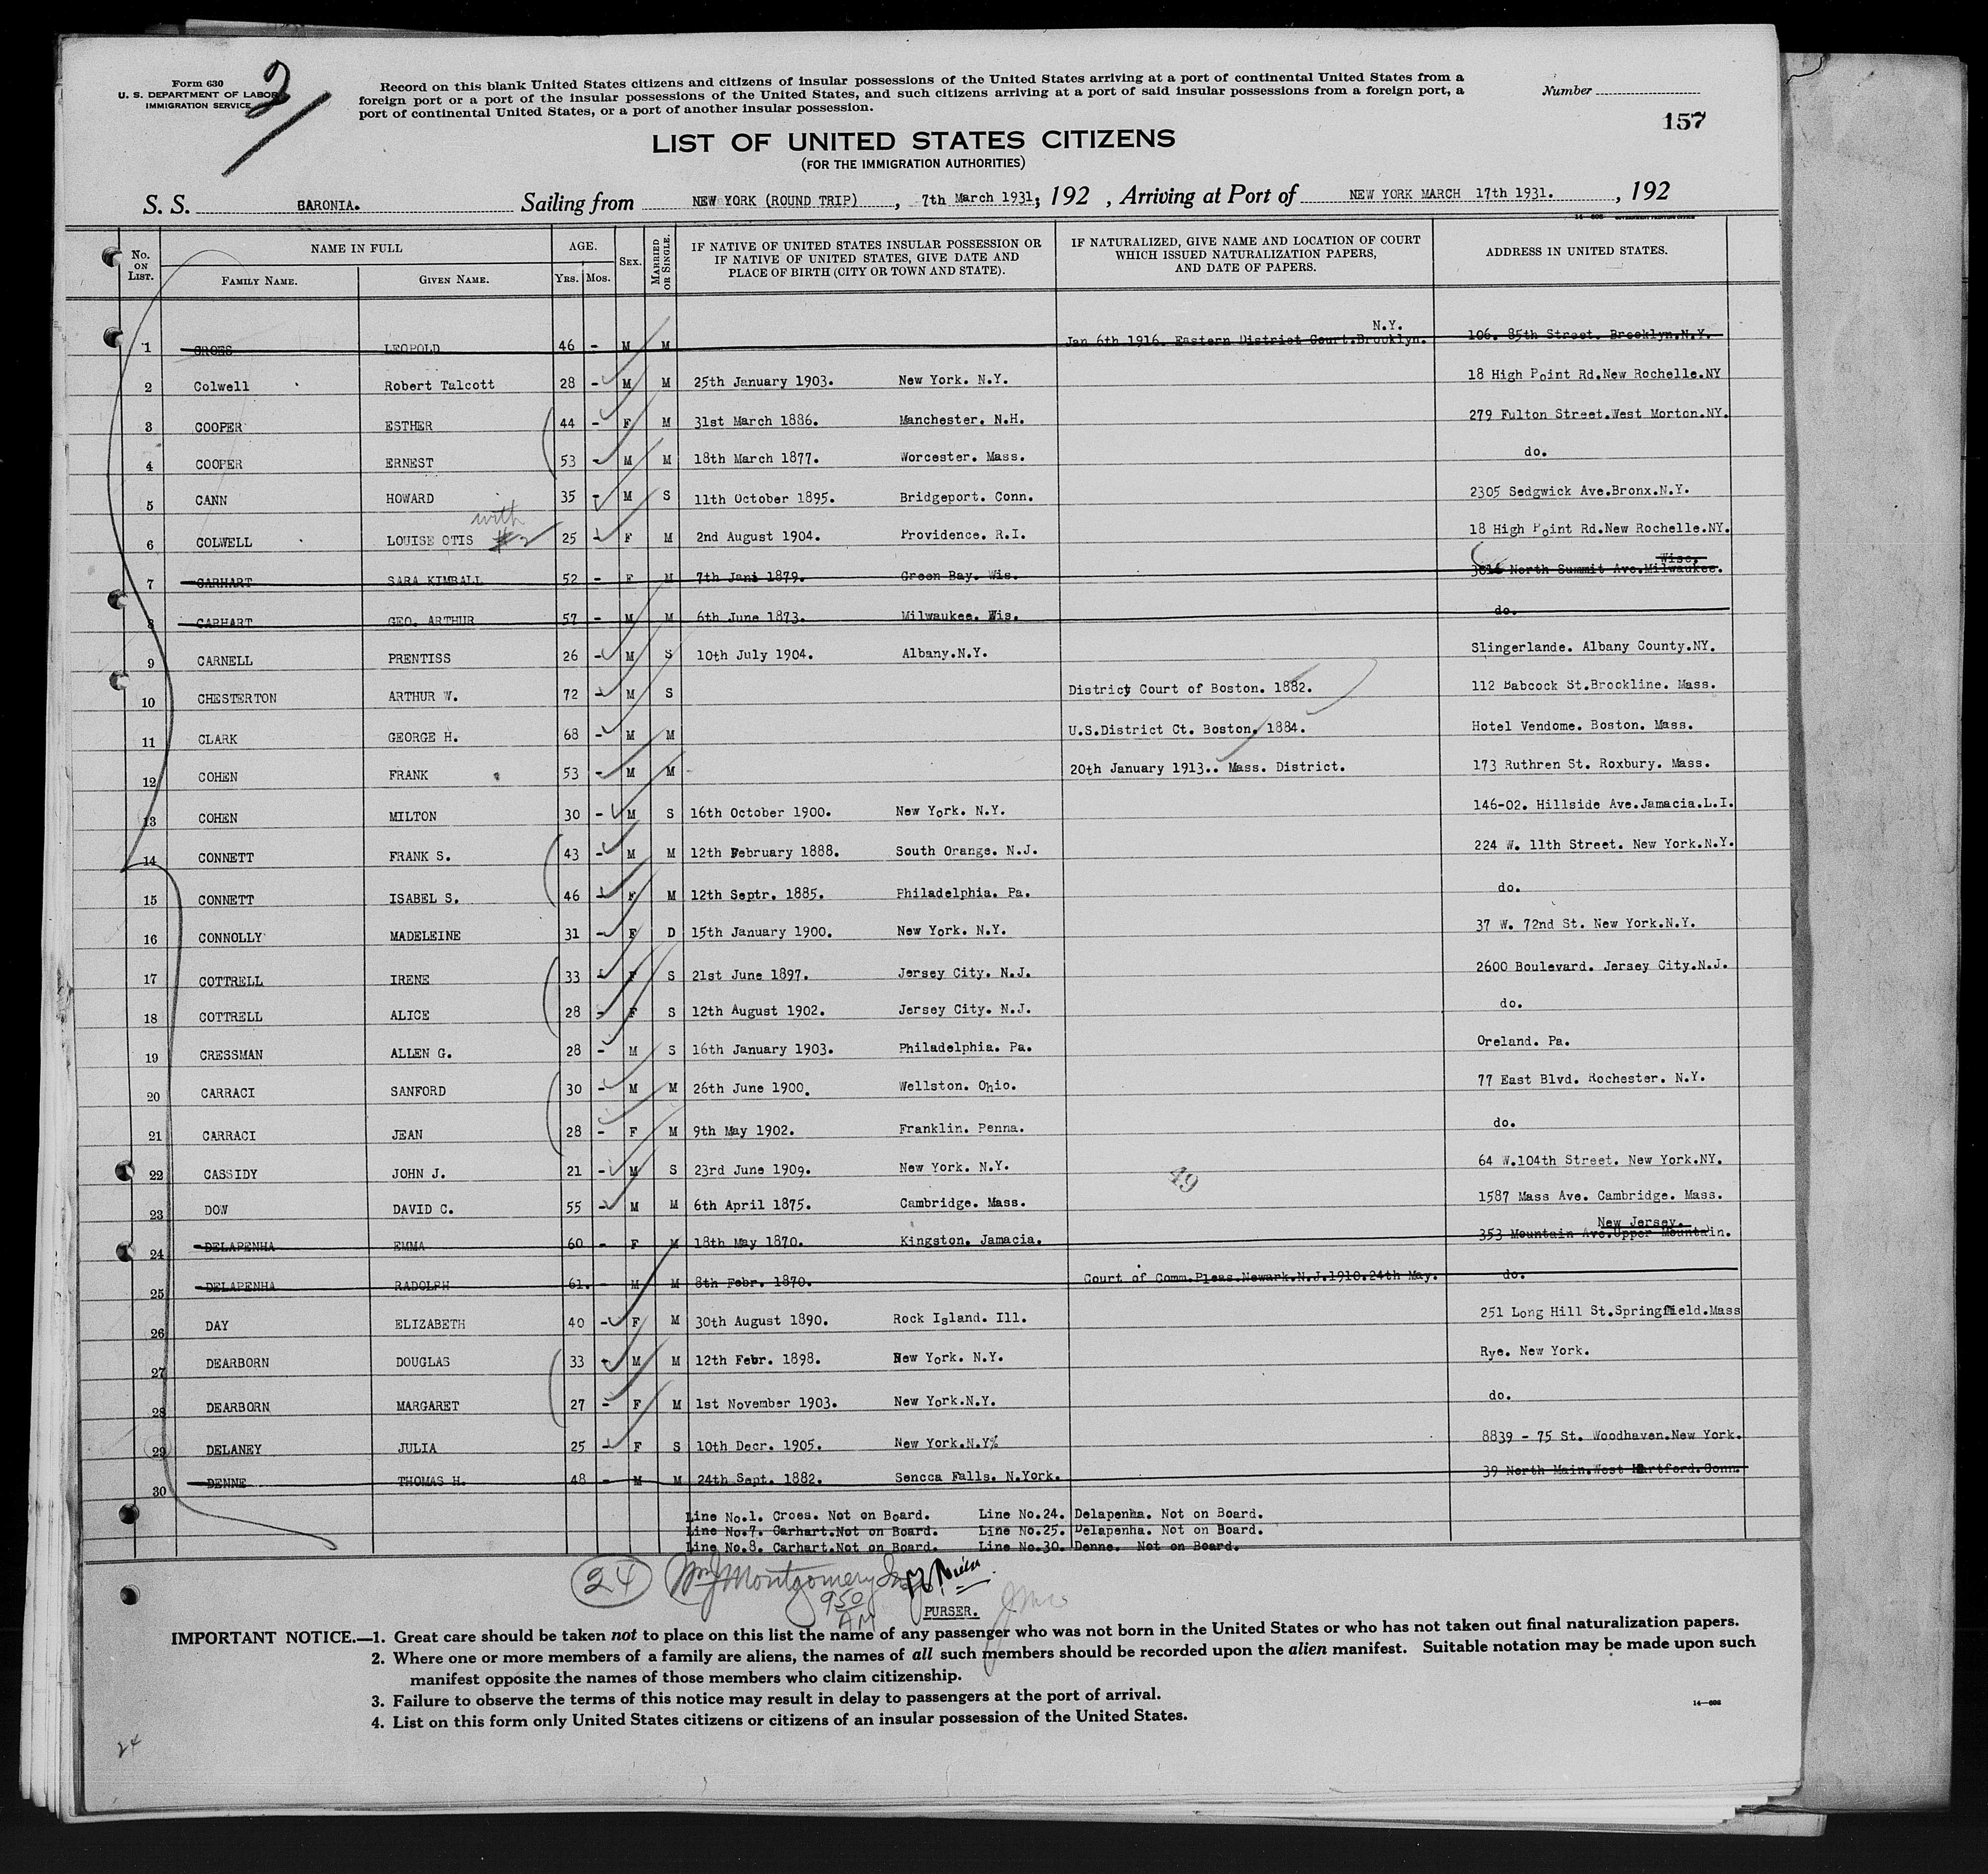 Form 630
U. S. DEPARTMENT OF LABOR
IMMIGRATION SERVICE
2
Record on this blank United States citizens and citizens of insular possessions of the United States arriving at a port of continental United States from a
foreign port or a port of the insular possessions of the United States, and such citizens arriving at a port of said insular possessions from a foreign port, a
port of continental United States, or a port of another insular possession.
Number
157
LIST OF UNITED STATES CITIZENS
(FOR THE IMMIGRATION AUTHORITIES)
S. S. CARONIA. Sailing from NEW YORK (ROUND TRIP), 7th March 1931; 192 , Arriving at Port of NEW YORK MARCH 17th 1931. , 192
14—606 GOVERNMENT PRINTING OFFICE
No. ON LIST. NAME IN FULL FAMILY NAME. GIVEN NAME. AGE. YRS. MOS. SEX. MARRIED OR SINGLE. IF NATIVE OF UNITED STATES INSULAR POSSESSION OR IF NATIVE OF UNITED STATES, GIVE DATE AND PLACE OF BIRTH (CITY OR TOWN AND STATE). IF NATURALIZED, GIVE NAME AND LOCATION OF COURT WHICH ISSUED NATURALIZATION PAPERS, AND DATE OF PAPERS. ADDRESS IN UNITED STATES.
1 CROES LEOPOLD 46 - M M Jan 6th 1916. Eastern District Court.Brooklyn. N.Y. 106. 85th Street. Brooklyn.N.Y.
2 Colwell Robert Talcott 28 - M M 25th January 1903. New York. N.Y. 18 High Point Rd.New Rochelle.NY
3 COOPER ESTHER 44 - F M 31st March 1886. Manchester. N.H. 279 Fulton Street.West Morton.NY.
4 COOPER ERNEST 53 - M M 18th March 1877. Worcester. Mass. do.
5 CANN HOWARD 35 - M S 11th October 1895. Bridgeport. Conn. 2305 Sedgwick Ave.Bronx.N.Y.
6 COLWELL LOUISE OTIS with #2 25 - F M 2nd August 1904. Providence. R.I. 18 High Point Rd.New Rochelle.NY.
7 CARHART SARA KIMBALL 52 - F M 7th Jani 1879. Green Bay. Wis. North Summit Ave.Milwaukee. Wisc.
8 CARHART GEO. ARTHUR 57 - M M 6th June 1873. Milwaukee. Wis. do.
9 CARNELL PRENTISS 26 - M S 10th July 1904. Albany.N.Y. Slingerlande. Albany County.NY.
10 CHESTERTON ARTHUR W. 72 - M S District Court of Boston. 1882. 112 Babcock St.Brockline. Mass.
11 CLARK GEORGE H. 68 - M M U.S.District Ct. Boston. 1884. Hotel Vendome. Boston. Mass.
12 COHEN FRANK 53 - M M 20th January 1913.. Mass. District. 173 Ruthren St. Roxbury. Mass.
13 COHEN MILTON 30 - M S 16th October 1900. New York. N.Y. 146-02. Hillside Ave.Jamacia.L.I.
14 CONNETT FRANK S. 43 - M M 12th February 1888. South Orange. N.J. 224 W. 11th Street. New York.N.Y.
15 CONNETT ISABEL S. 46 - F M 12th Septr. 1885. Philadelphia. Pa. do.
16 CONNOLLY MADELEINE 31 - F D 15th January 1900. New York. N.Y. 37 W. 72nd St. New York.N.Y.
17 COTTRELL IRENE 33 - F S 21st June 1897. Jersey City. N.J. 2600 Boulevard. Jersey City.N.J.
18 COTTRELL ALICE 28 - F S 12th August 1902. Jersey City. N.J. do.
19 CRESSMAN ALLEN G. 28 - M S 16th January 1903. Philadelphia. Pa. Oreland. Pa.
20 CARRACI SANFORD 30 - M M 26th June 1900. Wellston. Ohio. 77 East Blvd. Rochester. N.Y.
21 CARRACI JEAN 28 - F M 9th May 1902. Franklin. Penna. do.
22 CASSIDY JOHN J. 21 - M S 23rd June 1909. New York. N.Y. 64 W.104th Street. New York.NY.
49
23 DOW DAVID C. 55 - M M 6th April 1875. Cambridge. Mass. 1587 Mass Ave. Cambridge. Mass.
24 DELAPENHA EMMA 60 - F M 18th May 1870. Kingston. Jamacia. 353 Mountain Ave.Upper Mountain. New Jersey.
25 DELAPENHA RADOLPH 61. - M M 8th Febr. 1870. Court of Comm.Pleas.Newark.N.J.1910.24th May. do.
26 DAY ELIZABETH 40 - F M 30th August 1890. Rock Island. Ill. 251 Long Hill St.Springfield.Mass
27 DEARBORN DOUGLAS 33 - M M 12th Febr. 1898. New York. N.Y. Rye. New York.
28 DEARBORN MARGARET 27 - F M 1st November 1903. New York.N.Y. do.
29 DELANEY JULIA 25 - F S 10th Decr. 1905. New York.N.Y% 8839 - 75 St. Woodhaven.New York.
30 DENNE THOMAS H. 48 - M M 24th Sept. 1882. Sencca Falls. N.York. 39 North Main.West Hartford.Conn.
Line No.1. Croes. Not on Board. Line No.24. Delapenha. Not on Board.
Line No.7. Carhart.Not on Board. Line No.25. Delapenha. Not on Board.
Line No.8. Carhart.Not on Board. Line No.30. Denne. Not on Board.
24 Wm J Montgomery
950
AM
PURSER.
IMPORTANT NOTICE.—1. Great care should be taken not to place on this list the name of any passenger who was not born in the United States or who has not taken out final naturalization papers.
2. Where one or more members of a family are aliens, the names of all such members should be recorded upon the alien manifest. Suitable notation may be made upon such
manifest opposite the names of those members who claim citizenship.
3. Failure to observe the terms of this notice may result in delay to passengers at the port of arrival.
4. List on this form only United States citizens or citizens of an insular possession of the United States.
14—606
24